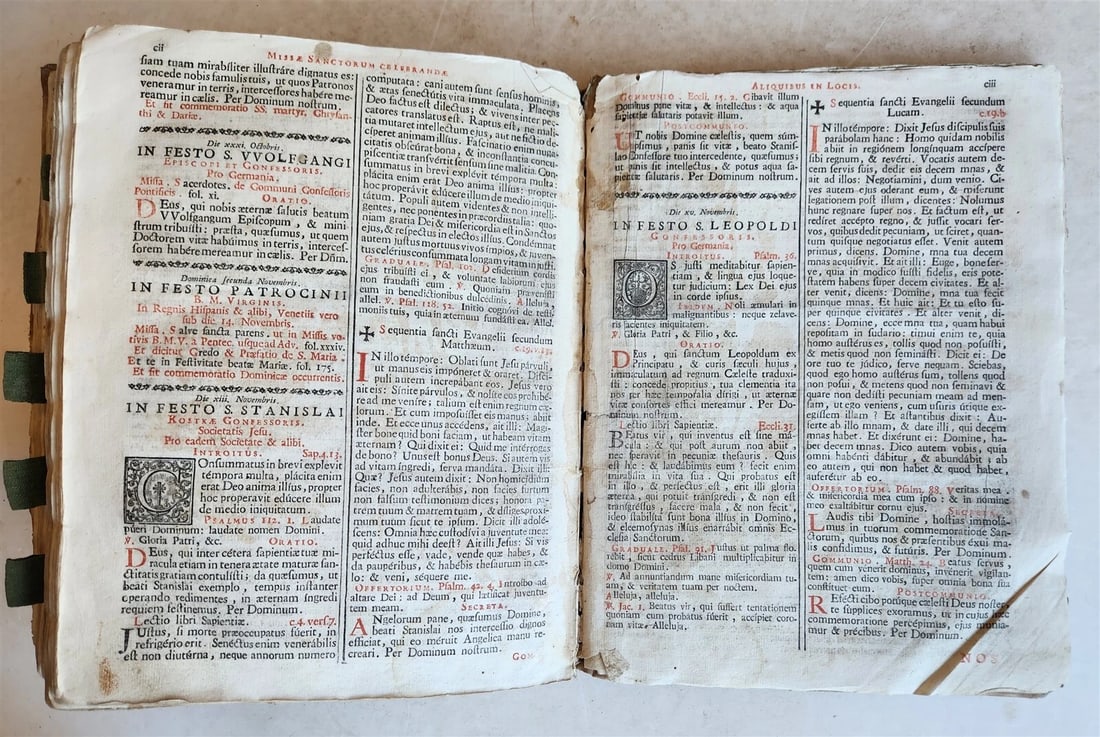 cii
MISSÆ SANCTORUM CELEBRANDÆ
siam tuam mirabiliter illustráre dignatus es:
concede nobis famulis tuis, ut quos Patronos
veneramur in terris, intercessores habére me-
reamur in cælis. Per Dominum nostrum.
Et fit commemoratio SS. martyr. Chrysan-
thi & Dariæ.
Die xxxi. Octobris.
IN FESTO S. VVOLFGANGI
EPISCOPI ET CONFESSORIS.
Pro Germania.
Missa. Sacerdotes. de Communi Confessoris
Pontificis. fol. xi. ORATIO.
DEus, qui nobis æternæ salutis beatum
VVolfgangum Episcopum, & mini-
strum tribuisti: præsta, quæsumus, ut quem
Doctorem vitæ habúimus in terris, interces-
sorem habére mereamur in cælis. Per Dñm.
Dominica secunda Novembris.
IN FESTO PATROCINII
B. M. VIRGINIS.
In Regnis Hispanis & alibi, Venetiis vero
sub die 14. Novembris.
Missa. Salve sancta parens. ut in Missis vo-
tivis B.M.V. a Pentec. usque ad Adv. fol. xxxiv.
Et dicitur Credo & Præfatio de S. Maria.
Et te in Festivitate beatæ Mariæ. fol. 175.
Et fit commemoratio Dominicæ occurrentis.
Die xiii. Novembris.
IN FESTO S. STANISLAI
KOSTKÆ CONFESSORIS.
Societatis Jesu.
Pro eadem Societate & alibi.
INTROITUS. Sap. 4. 13.
COnsummatus in brevi explevit
témpora multa, plácita enim
erat Deo anima illius, propter
hoc properavit edúcere illum
de medio iniquitatum.
PSALMUS 112. 1. Laudate
púeri Dominum: laudate nomen Domini.
℣. Gloria Patri, &c. ORATIO.
DEus, qui inter cétera sapientiæ tuæ mi-
racula etiam in tenera ætate maturæ san-
ctitatis gratiam contulisti: da quæsumus, ut
beati Stanislai exemplo, tempus instanter
operando redimentes, in æternam ingredi
requiem festinemus. Per Dominum.
Lectio libri Sapientiæ. c. 4. vers. 7.
JUstus, si morte præoccupatus fúerit, in
refrigério erit. Senéctus enim venerábilis
est non diutúrna, neque annorum numero
computata: cani autem sunt sensus hominis,
& ætas senectútis vita immaculata. Placens
Deo factus est dilectus: & vivens inter pec-
catores translatus est. Raptus est, ne mali-
tia mutaret intellectum ejus, aut ne fictio de-
ciperet animam illius. Fascinatio enim nuga-
citatis obscúrat bona, & inconstantia concu-
piscentiæ transvértit sensum sine malitia. Con-
summatus in brevi explévit témpora multa:
plácita enim erat Deo anima illius: propter
hoc properávit edúcere illum de medio iniqui-
tatum. Populi autem videntes & non intelli-
gentes, nec ponentes in præcordiis talia: quo-
niam gratia Dei & misericordia est in Sanctos
ejus, & respectus in electos illius. Condémnat
autem justus mortuus vivos impios, & juven-
tus celérius consummata longam vitam injusti.
GRADUALE. Psal. 20. Desidérium cordis
ejus tribuisti ei, & voluntate labiorum ejus
non fraudasti eum. ℣. Quoniam prævenisti
eum in benedictionibus dulcédinis. Alleluja,
allel. ℣. Psal. 118. 52. Initio cognóvi de testi-
moniis tuis, quia in æternum fundasti ea. Allel.
✠ Sequentia sancti Evangelii secundum
Matthæum. c. 19. v. 13.
IN illo témpore: Oblati sunt Jesu párvuli,
ut manus eis impóneret & oraret. Disci-
puli autem increpábant eos. Jesus vero
ait eis: Sínite párvulos, & nolíte eos prohibé-
re ad me venire: talium est enim regnum cæ-
lorum. Et cum imposuisset eis manus, abiit
inde. Et ecce unus accédens, ait illi: Magi-
ster bone quid boni faciam, ut habeam vitam
æternam? Qui dixit ei: Quid me intérrogas
de bono? Unus est bonus Deus. Si autem vis
ad vitam ingredi, serva mandáta. Dixit illi:
Quæ? Jesus autem dixit: Non homicídium
facies, non adulterábis, non facies furtum
non falsum testimonium dices; honora pa-
trem tuum & matrem tuam, & díliges próxi-
mum tuum sicut te ipsum. Dicit illi adolé-
scens: Omnia hæc custodívi a juventute mea:
quid adhuc mihi deest? Ait illi Jesus: Si vis
perféctus esse, vade, vende quæ habes, &
da paupéribus, & habébis thesaurum in cæ-
lo: & veni, séquere me.
OFFERTORIUM. Psalm. 42. 4. Introíbo ad
altare Dei: ad Deum, qui lætificat juventu-
tem meam. SECRETA.
ANgelorum pane, quæsumus Domine,
beati Stanislai nos intercessio dignos
efficiat, qui eo méruit Angelica manu re-
creari. Per Dominum nostrum.
COM-
ALIQUIBUS IN LOCIS. ciii
COMMUNIO. Eccli. 15. 2. Cibavit illum
Dominus pane vitæ, & intellectus: & aqua
sapientiæ salutaris potavit illum.
POSTCOMMUNIO.
UT nobis Domine cælestis, quem súm-
psimus, panis sit vitæ, beato Stanis-
lao Confessore tuo intercedente, quæsumus;
ut panis sit intellectus, & potus aqua sa-
pientiæ salutaris. Per Dominum nostrum.
Die xv. Novembris.
IN FESTO S. LEOPOLDI
CONFESSORIS.
Pro Germania.
INTROITUS. Psalm. 36.
OS justi meditabitur sapien-
tiam, & lingua ejus loque-
tur judicium: Lex Dei ejus
in corde ipsius.
IBIDEM. Noli æmulari in
malignantibus: neque zelave-
ris facientes iniquitatem.
℣. Gloria Patri, & Filio, &c.
ORATIO.
DEus, qui sanctum Leopoldum ex
Principatu, & curis sæculi hujus,
immaculatum ad regnum Cæleste traduxi-
sti: concede propitius, tua clementia ita
nos per hæc temporalia dirigi, ut æternæ
vitæ consortes effici mereamur. Per Do-
minum nostrum.
Lectio libri Sapientiæ. Eccli. 31.
BEatus vir, qui inventus est sine má-
cula: & qui post aurum non abiit,
nec speravit in pecuniæ thesauris. Quis
est hic: & laudábimus eum? fecit enim
mirabília in vita sua. Qui probatus est
in illo, & perfectus est, erit illi gloria
æterna, qui pótuit transgredi, & non est
transgréssus, facere mala, & non fecit,
ideo stabilita sunt bona illius in Domino,
& eleemosynas illius enarrábit omnis Ec-
clesia Sanctorum.
GRADUALE. Psal. 91. Justus ut palma flo-
rébit, sicut cedrus Libani multiplicabitur in
domo Domini.
℣. Ad annuntiandum mane misericordiam tu-
am, & veritatem tuam per noctem.
Alleluja, alleluja.
℣. Jac. 1. Beatus vir, qui suffert tentationem
quoniam cum probatus fúerit, accipiet coro-
nam vitæ. Alleluja.
✠ Sequentia sancti Evangelii secundum
Lucam. c. 19. b
IN illo témpore: Dixit Jesus discipulis suis
parábolam hanc: Homo quidam nobilis
abiit in regiónem longínquam accípere
sibi regnum, & revérti. Vocatis autem de-
cem servis suis, dedit eis decem mnas, &
ait ad illos: Negotiamini, dum venio. Ci-
ves autem ejus óderant eum, & miserunt
legationem post illum, dicentes: Nolumus
hunc regnare super nos. Et factum est, ut
rediret accepto regno, & jussit vocari ser-
vos, quibus dedit pecuniam, ut sciret, quan-
tum quisque negotiatus esset. Venit autem
primus, dicens, Domine, mna tua decem
mnas acquisivit. Et ait illi: Euge, bone ser-
ve, quia in modico fuisti fidelis, eris pote-
statem habens super decem civitates. Et al-
ter venit, dicens: Domine, mna tua fecit
quinque mnas. Et huic ait: Et tu esto su-
per quinque civitates. Et alter venit, di-
cens: Domine, ecce mna tua, quam habui
repositam in sudario: timui enim te, quia
homo austérus es, tollis quod non posuisti,
& metis quod non seminasti. Dicit ei: De
ore tuo te júdico, serve nequam. Sciebas,
quod ego homo austérus sum, tollens quod
non posui, & metens quod non seminavi &
quare non dedisti pecuniam meam ad men-
sam, ut ego veniens, cum usuris utique ex-
egissem illam? Et astantibus dixit: Au-
ferte ab illo mnam, & date illi, qui decem
mnas habet. Et dixérunt ei: Domine, ha-
bet decem mnas. Dico autem vobis, quia
omni habénti dábitur, & abundábit: ab
eo autem, qui non habet & quod habet,
auferétur ab eo.
OFFERTORIUM. Psalm. 88. Veritas mea,
& misericordia mea cum ipso: & in nómine
meo exaltábitur cornu ejus. SECRETA.
LAudis tibi Domine, hostias immolá-
mus in tuorum commemoratione San-
ctorum, quibus nos & præséntibus éxui ma-
lis confídimus, & futúris. Per Dominum.
COMMUNIO. Matth. 24. Beatus servus,
quem cum venerit dominus, invenerit vigilan-
tem: amen dico vobis, super omnia bona sua
constituet eum.
POSTCOMMUNIO.
REfecti cibo potuque cælesti Deus noster,
te supplices exoramus, ut in cujus hæc
commemoratione percépimus, ejus muniá-
mur & précibus. Per Dominum.
NOS